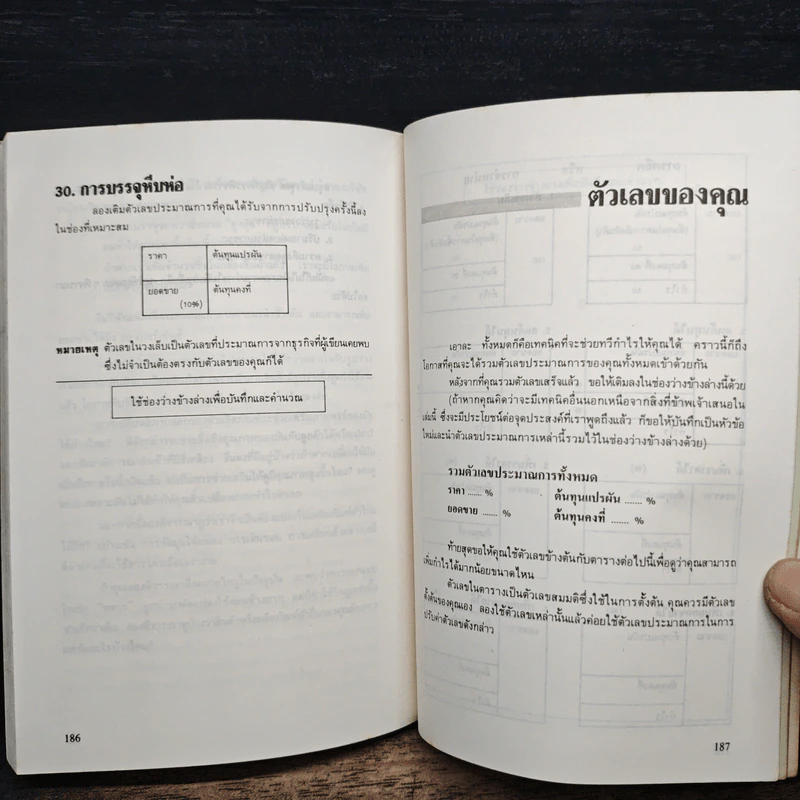 30. การบรรจุหีบห่อ
ลองเติมตัวเลขประมาณการที่คุณได้รับจากการปรับปรุงครั้งนี้ลง
ในช่องที่เหมาะสม
ราคา
ต้นทุนแปรผัน
ยอดขาย
(10%)
ต้นทุนคงที่
หมายเหตุ ตัวเลขในวงเล็บเป็นตัวเลขที่ประมาณการจากธุรกิจที่ผู้เขียนเคยพบ
ซึ่งไม่จำเป็นต้องตรงกับตัวเลขของคุณก็ได้
ใช้ช่องว่างข้างล่างเพื่อบันทึกและคำนวณ
186
ตัวเลขของคุณ
เอาละ ทั้งหมดก็คือเทคนิคที่จะช่วยทวีกำไรให้คุณได้ คราวนี้ก็ถึง
โอกาสที่คุณจะได้รวมตัวเลขประมาณการของคุณทั้งหมดเข้าด้วยกัน
หลังจากที่คุณรวมตัวเลขเสร็จแล้ว ขอให้เติมลงในช่องว่างข้างล่างนี้ด้วย
(ถ้าหากคุณคิดว่าจะมีเทคนิคอื่นนอกเหนือจากสิ่งที่ข้าพเจ้าเสนอใน
เล่มนี้ ซึ่งจะมีประโยชน์ต่อจุดประสงค์ที่เราพูดถึงแล้ว ก็ขอให้บันทึกเป็นหัวข้อ
ใหม่และนำตัวเลขประมาณการเหล่านี้รวมไว้ในช่องว่างข้างล่างด้วย)
รวมตัวเลขประมาณการทั้งหมด
ราคา ...... % ต้นทุนแปรผัน ....... %
ยอดขาย ...... % ต้นทุนคงที่ ....... %
ท้ายสุดขอให้คุณใช้ตัวเลขข้างต้นกับตารางต่อไปนี้เพื่อดูว่าคุณสามารถ
เพิ่มกำไรได้มากน้อยขนาดไหน
ตัวเลขในตารางเป็นตัวเลขสมมติซึ่งใช้ในการตั้งต้น คุณควรมีตัวเลข
ตั้งต้นของคุณเอง ลองใช้ตัวเลขเหล่านั้นแล้วค่อยใช้ตัวเลขประมาณการในการ
ปรับค่าตัวเลขดังกล่าว
187